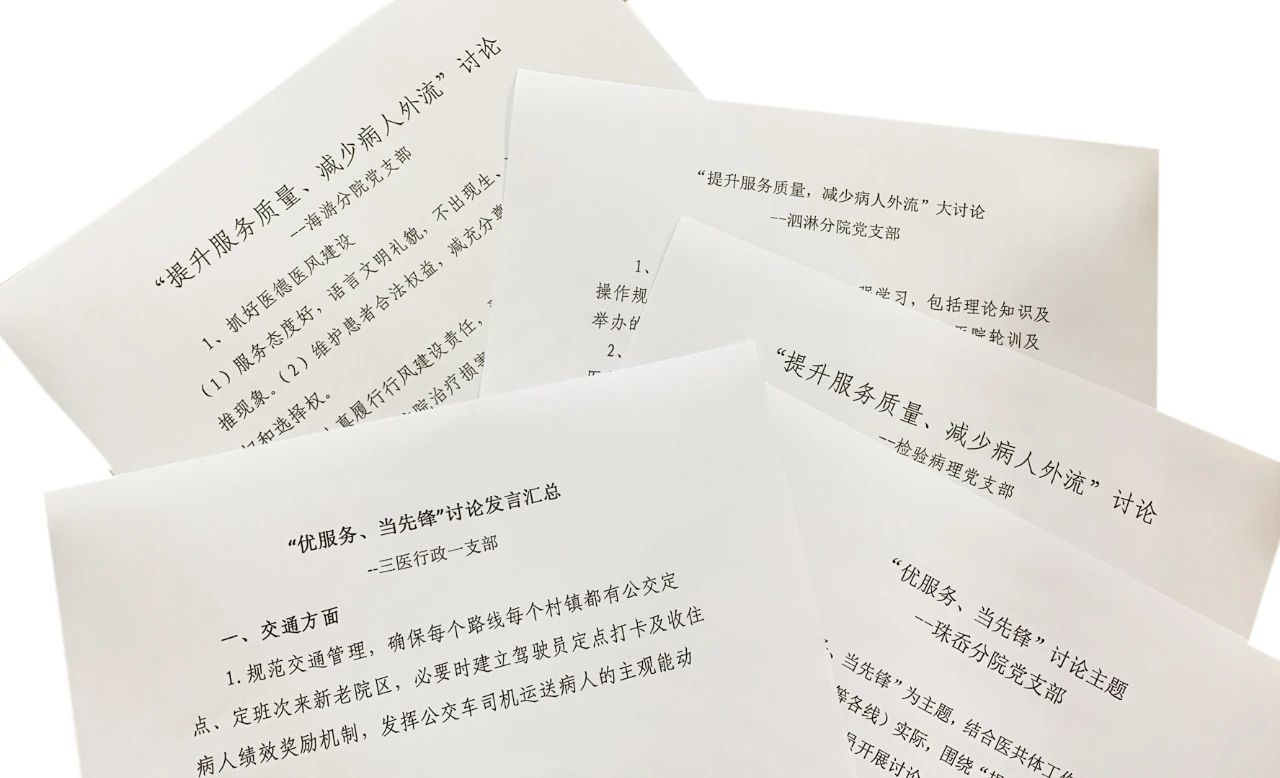 “提升服务质量、减少病人外流”讨论
--海游分院党支部
1、抓好医德医风建设
（1）服务态度好，语言文明礼貌，不出现生、
推现象。（2）维护患者合法权益，减充分尊
和选择权。
真履行行风建设责任，
院治疗损害
“提升服务质量，减少病人外流”大讨论
--泗淋分院党支部
1、
学习，包括理论知识及
操作规
医院轮训及
举办的
2、
“提升服务质量、减少病人外流”讨论
--检验病理党支部
“优服务、当先锋”讨论发言汇总
--三医行政一支部
一、交通方面
1.规范交通管理，确保每个路线每个村镇都有公交定
点、定班次来新老院区，必要时建立驾驶员定点打卡及收住
病人绩效奖励机制，发挥公交车司机运送病人的主观能动
“优服务、当先锋”讨论主题
--珠岙分院党支部
、当先锋”为主题，结合医共体工作
等各线）实际，围绕“提
员开展讨论